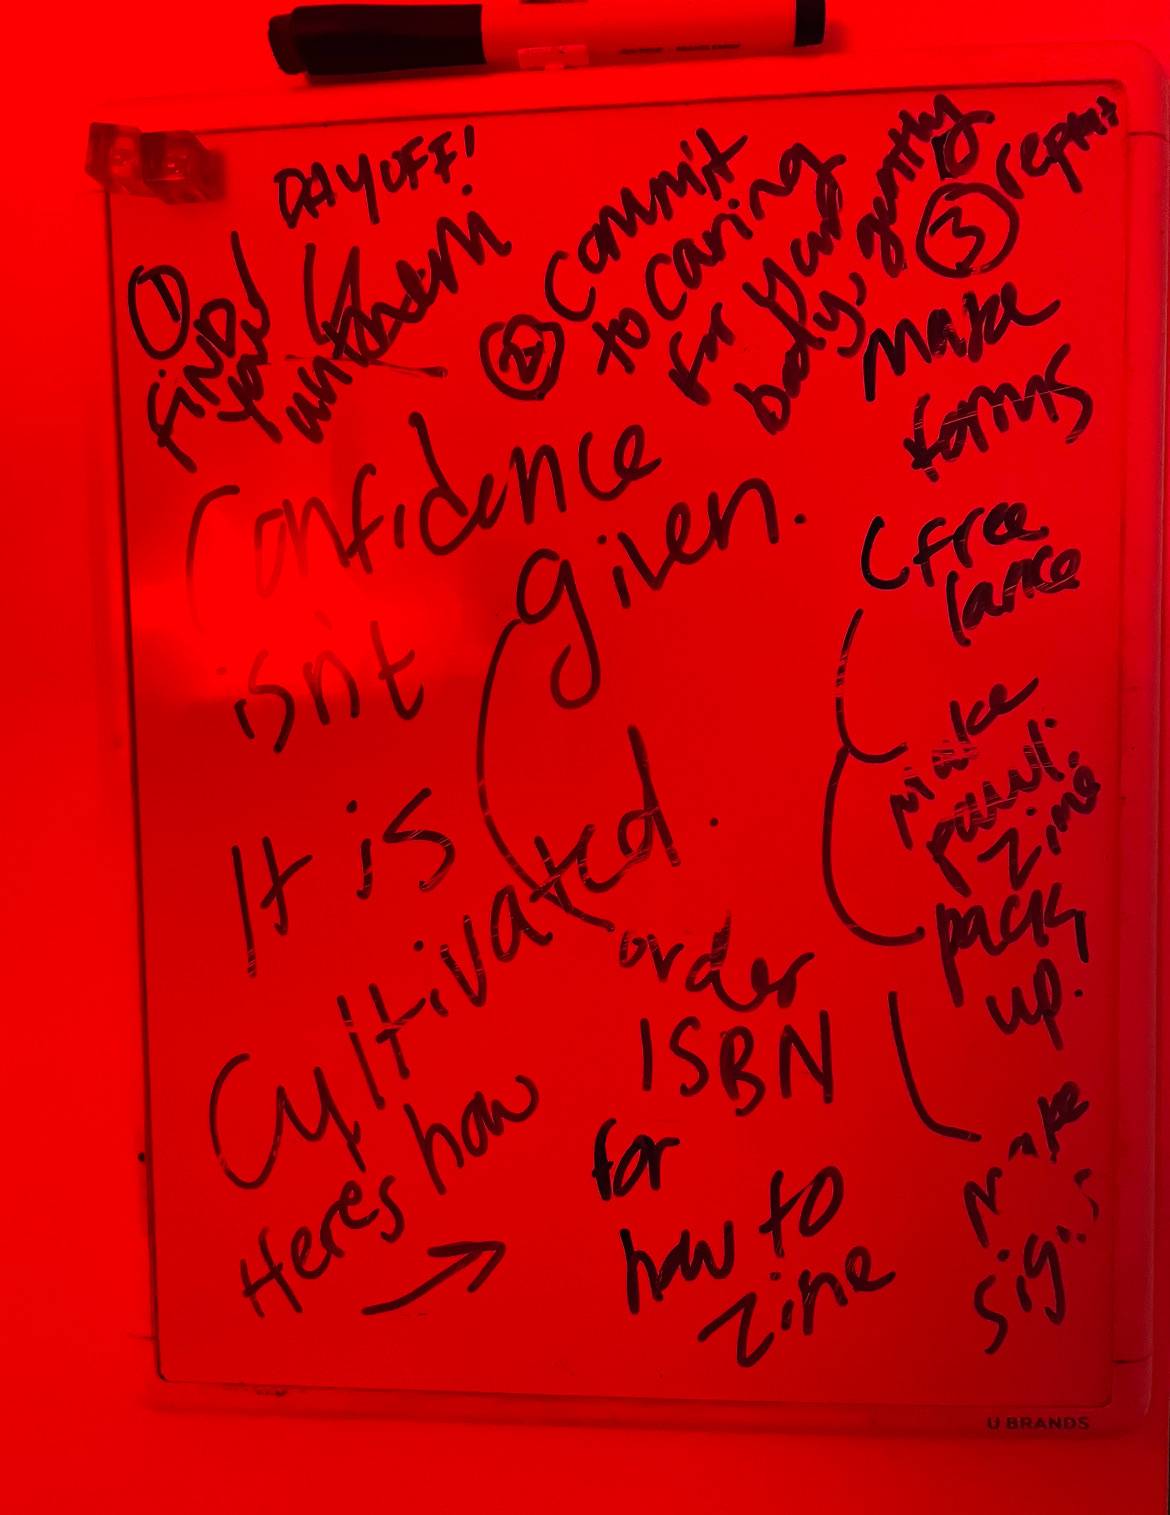 DAY OFF!
①
FIND
your
anthem
② Commit
to caring
for your
body, gently
③ repeat
Make
forms
(free
lance
Confidence
isn't
given.
It is
Cultivated.
Heres how
→
order
ISBN
for
how to
zine
Make
zine
pack
up.
make
signs
U BRANDS